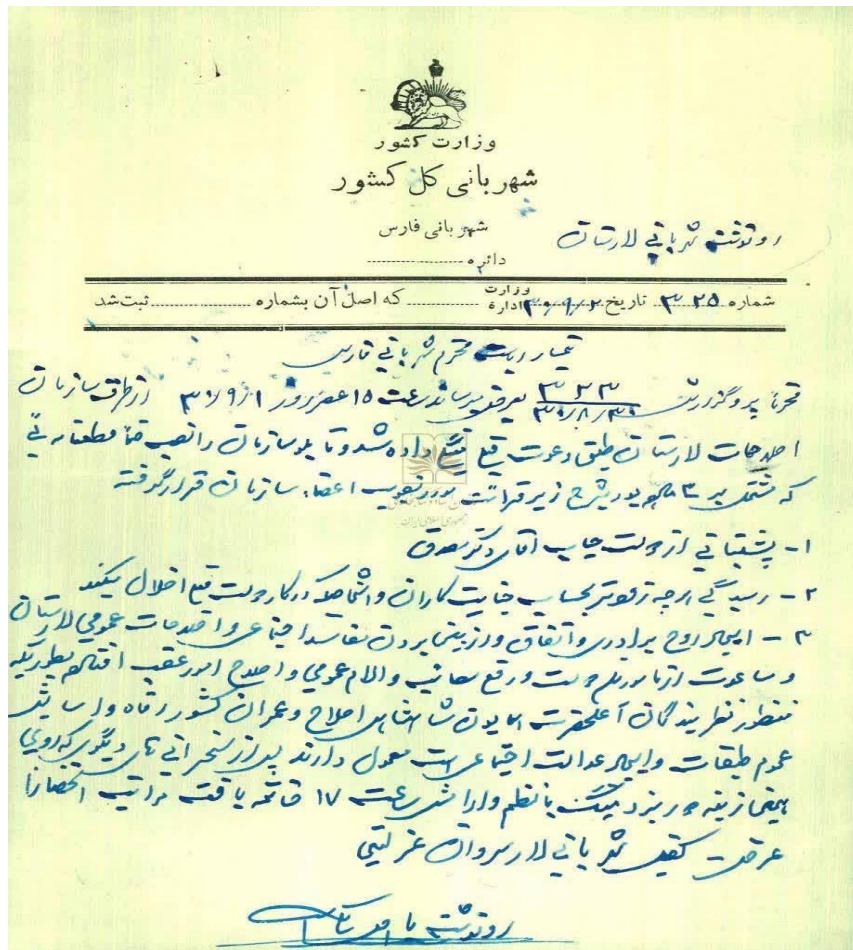 وزارت کشور
شهربانی کل کشور
شهربانی فارس
رونوشت شهربانی لارستان
دائره
شماره ۳۲۵ تاریخ ۳۰/۹/۲ وزارت اداره که اصل آن بشماره ثبت شد
تیمسار ریاست محترم شهربانی فارس
محترما پیرو گزارش ۳۲۳ ۳۰/۸/۳۰ بعرض میرساند ساعت ۱۵ عصر روز ۳۰/۹/۱ از طرف سازمان
اصلاحات لارستان طبق دعوت قبلی میتینگ داده شد و تابلو سازمان را نصب ضمنا قطعنامه ئی
که مشتمل بر ۳ ماده بود بشرح زیر قرائت مورد تصویب اعضاء سازمان قرار گرفت
۱- پشتیبانی از دولت جناب آقای دکتر مصدق
۲- رسیدگی هرچه زودتر بحساب جنایت کاران و اشخاصیکه در کار دولت اخلال میکنند
۳- ایجاد روح برادری و اتفاق و از بین بردن مفاسد اجتماعی و اصلاحات عمومی لارستان
و مساعدت از مامورین دولت و رفع مصائب و آلام عمومی و اصلاح امور عقب افتاده بطوریکه
منظور نظر بندگان اعلیحضرت همایون شاهنشاهی اصلاح و عمران کشور رفاه و آسایش
عموم طبقات و ایجاد عدالت اجتماعی است معمول دارند پس از سخنرانی های دیگری که روی
همین زمینه میتینگ با نظم و آرامش ساعت ۱۷ خاتمه یافت مراتب استحضارا
عرض شد کفیل شهربانی لار سروان
رونوشت با اصل